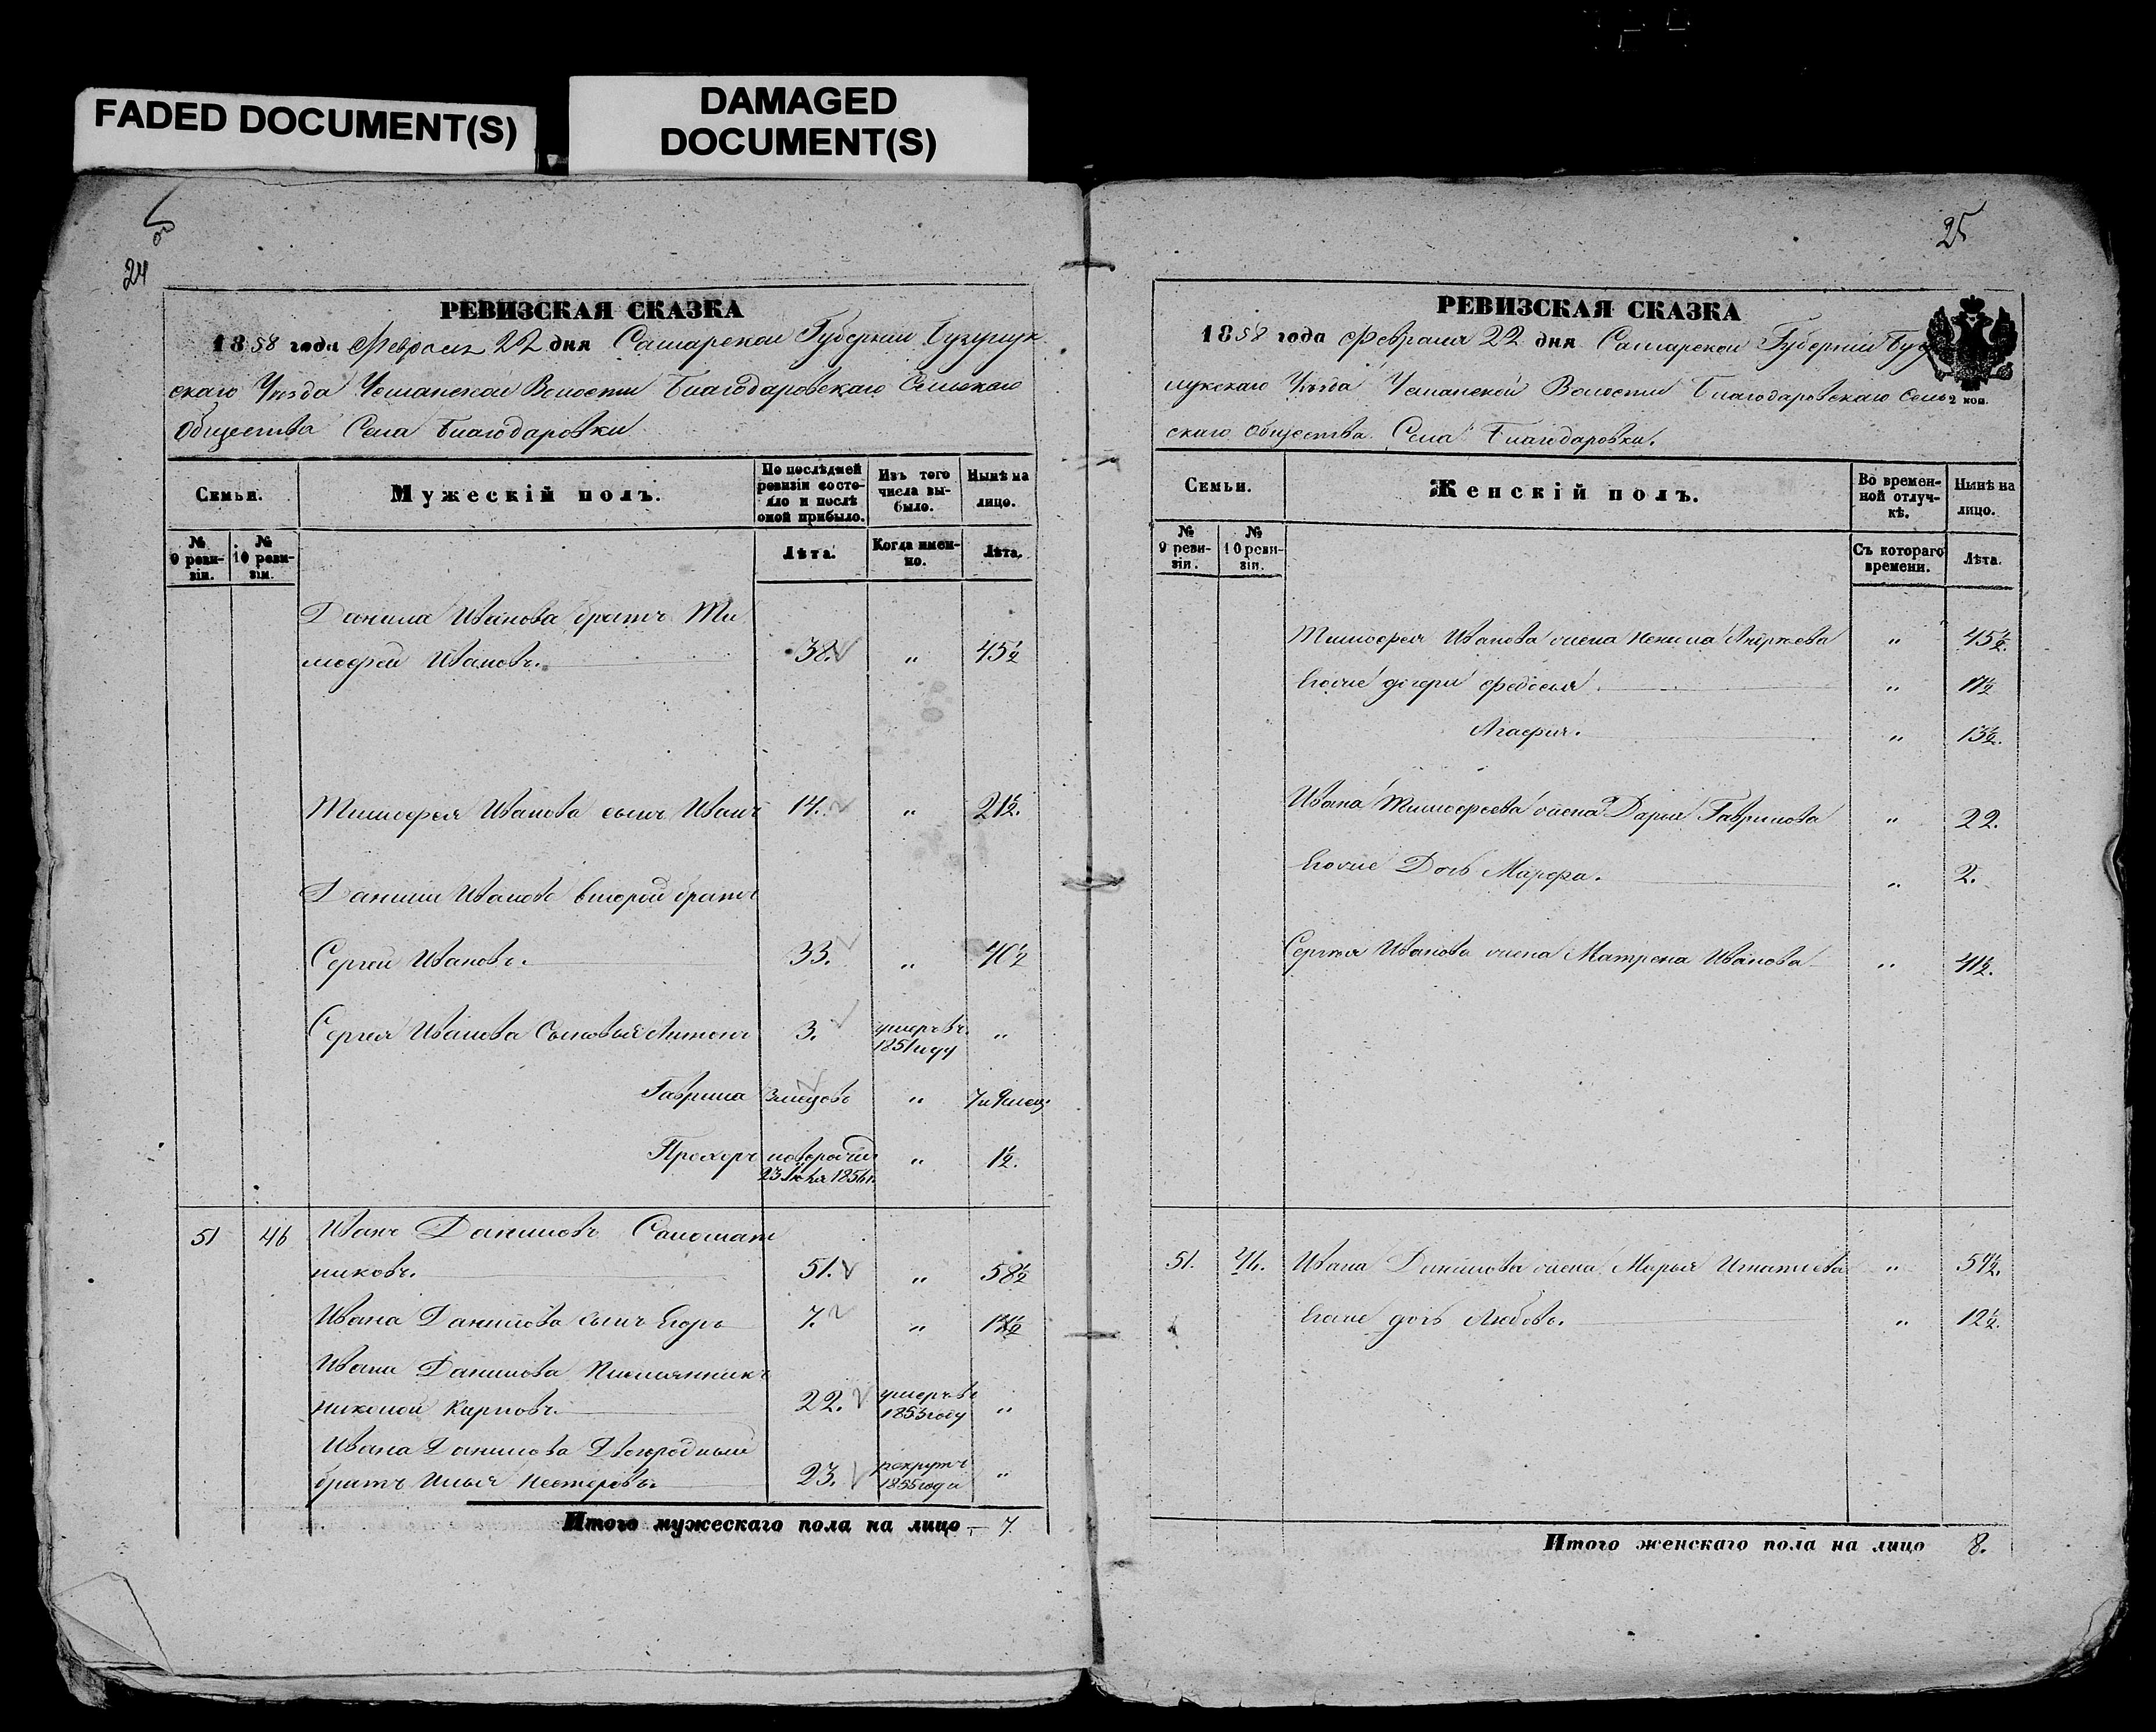 FADED DOCUMENT(S)
DAMAGED
DOCUMENT(S)
24
РЕВИЗСКАЯ СКАЗКА
1858 года Февраля 22 дня Самарской Губернiи Бузулук
скаго Уѣзда Усманской Волости Благодаровскаго Сельскаго
Общества Села Благодаровки
Семьи.
Мужескiй полъ.
По послѣдней ревизiи состояло и послѣ оной прибыло.
Изъ того числа выбыло.
Нынѣ на лицо.
№ 9 ревизiи.
№ 10 ревизiи.
Лѣта.
Когда именно.
Лѣта.
Данила Иванова братъ Ти
мофей Ивановъ. 38. " 45½
Тимофея Иванова сынъ Иванъ 14. " 21½.
Данилы Иванова второй братъ
Сергей Ивановъ. 33. " 40½
Сергея Иванова Сыновья Антонъ 3. умеръ въ 1851 году "
Гаврила 3 месецовъ " 7 и 9 месец.
Прохоръ новорожден 1856 " 1½.
51 46 Иванъ Даниловъ Соломат
никовъ. 51. " 58½
Ивана Данилова сынъ Егоръ 7. " 14½
Ивана Данилова Племянникъ
Николай Карповъ. 22. умеръ въ 1853 году "
Ивана Данилова Двоюродный
братъ Илья Нестеровъ. 23. рекрутъ 1855 года "
Итого мужескаго пола на лицо 7.
25
РЕВИЗСКАЯ СКАЗКА
1858 года Февраля 22 дня Самарской Губернiи Бузу
лукскаго Уѣзда Усманской Волости Благодаровскаго Сель
2 коп.
скаго Общества Села Благодаровки.
Семьи.
Женскiй полъ.
Во временной отлучкѣ.
Нынѣ на лицо.
№ 9 ревизiи.
№ 10 ревизiи.
Съ котораго времени.
Лѣта.
Тимофея Иванова жена Ненила " 45½.
Егоже дочери Федосья. " 17½
Агафья. " 13½.
Ивана Тимофеева жена Дарья Гаврилова " 22.
Егоже Дочь Марфа. " 2.
Сергея Иванова жена Матрена Иванова " 41½.
51. 46. Ивана Данилова жена Марья Игнатьева " 57½.
Егоже дочь Любовь. " 12½.
Итого женскаго пола на лицо 8.